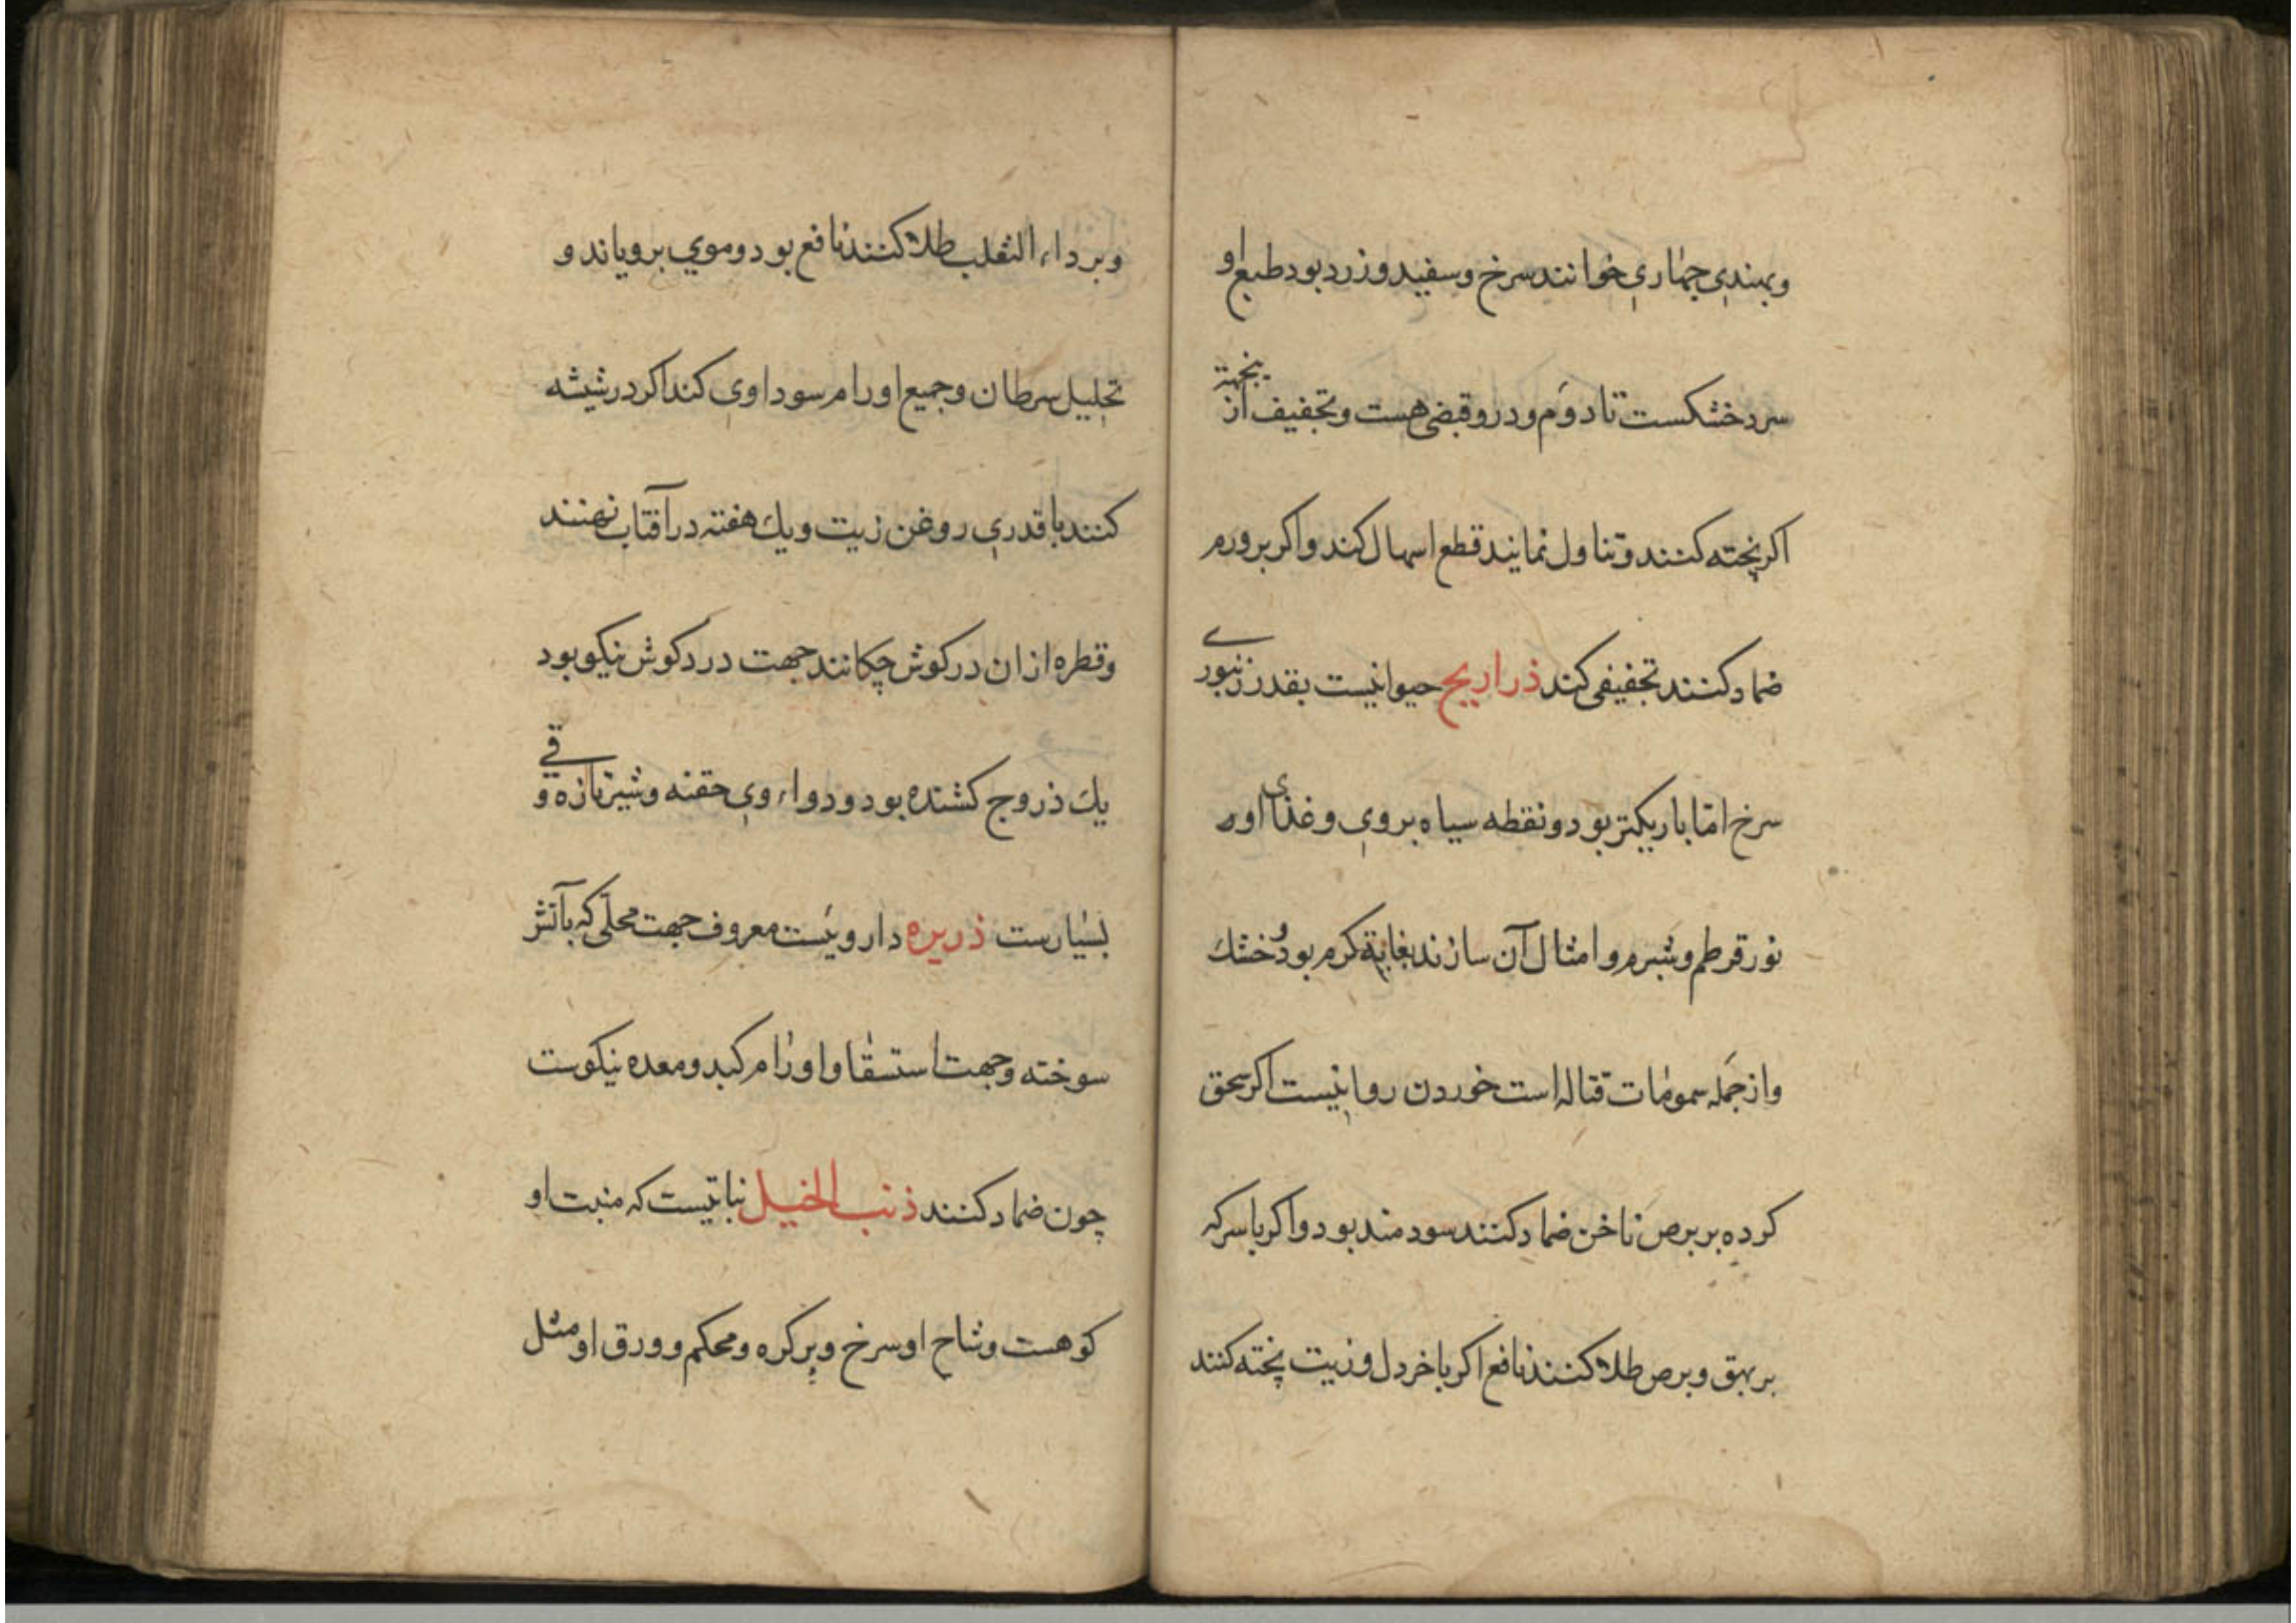 وبهندی جماری خوانند سرخ وسفید وزرد بود طبع او
سرد خشکست تا دوّم ودرو قبضی هست وتجفیف از بجهة
اکر پخته کنند وتناول نمایند قطع اسهال کند واکر بر ورم
ضماد کنند تخفیفی کند ذراریح حیوانیست بقدر زنبوری
سرخ امّا باریکتر بود ونقطه سیاه بر وی وغذای او
نور قرطم وشبرم وامثال آن سازند بغایة کرم بود وخشك
واز جمله سمومات قتاله است خوردن روا نیست اکر سحق
کرده بر برص ناخن ضماد کنند سودمند بود واکر با سرکه
بر بهق وبرص طلا کنند نافع اکر با خردل وزیت پخته کنند
وبر داء الثعلب طلا کنند نافع بود وموی برویاند و
تحلیل سرطان وجمیع اورام سوداوی کند اکر در شیشه
کنند با قدری روغن زیت ویك هفته در آفتاب نهند
وقطره ازان در کوش چکانند جهت درد کوش نیکو بود
یك ذروح کشنده بود ودواء وی حقنه وشیر تازه و قی
بسیارست ذریره داروئیست معروف جهت محلّی که بآتش
سوخته وجهت استسقا واورام کبد ومعده نیکوست
چون ضماد کنند ذنب الخیل نباتیست که منبت او
کوهست وشاح او سرخ وپر کره ومحکم وورق او مثل